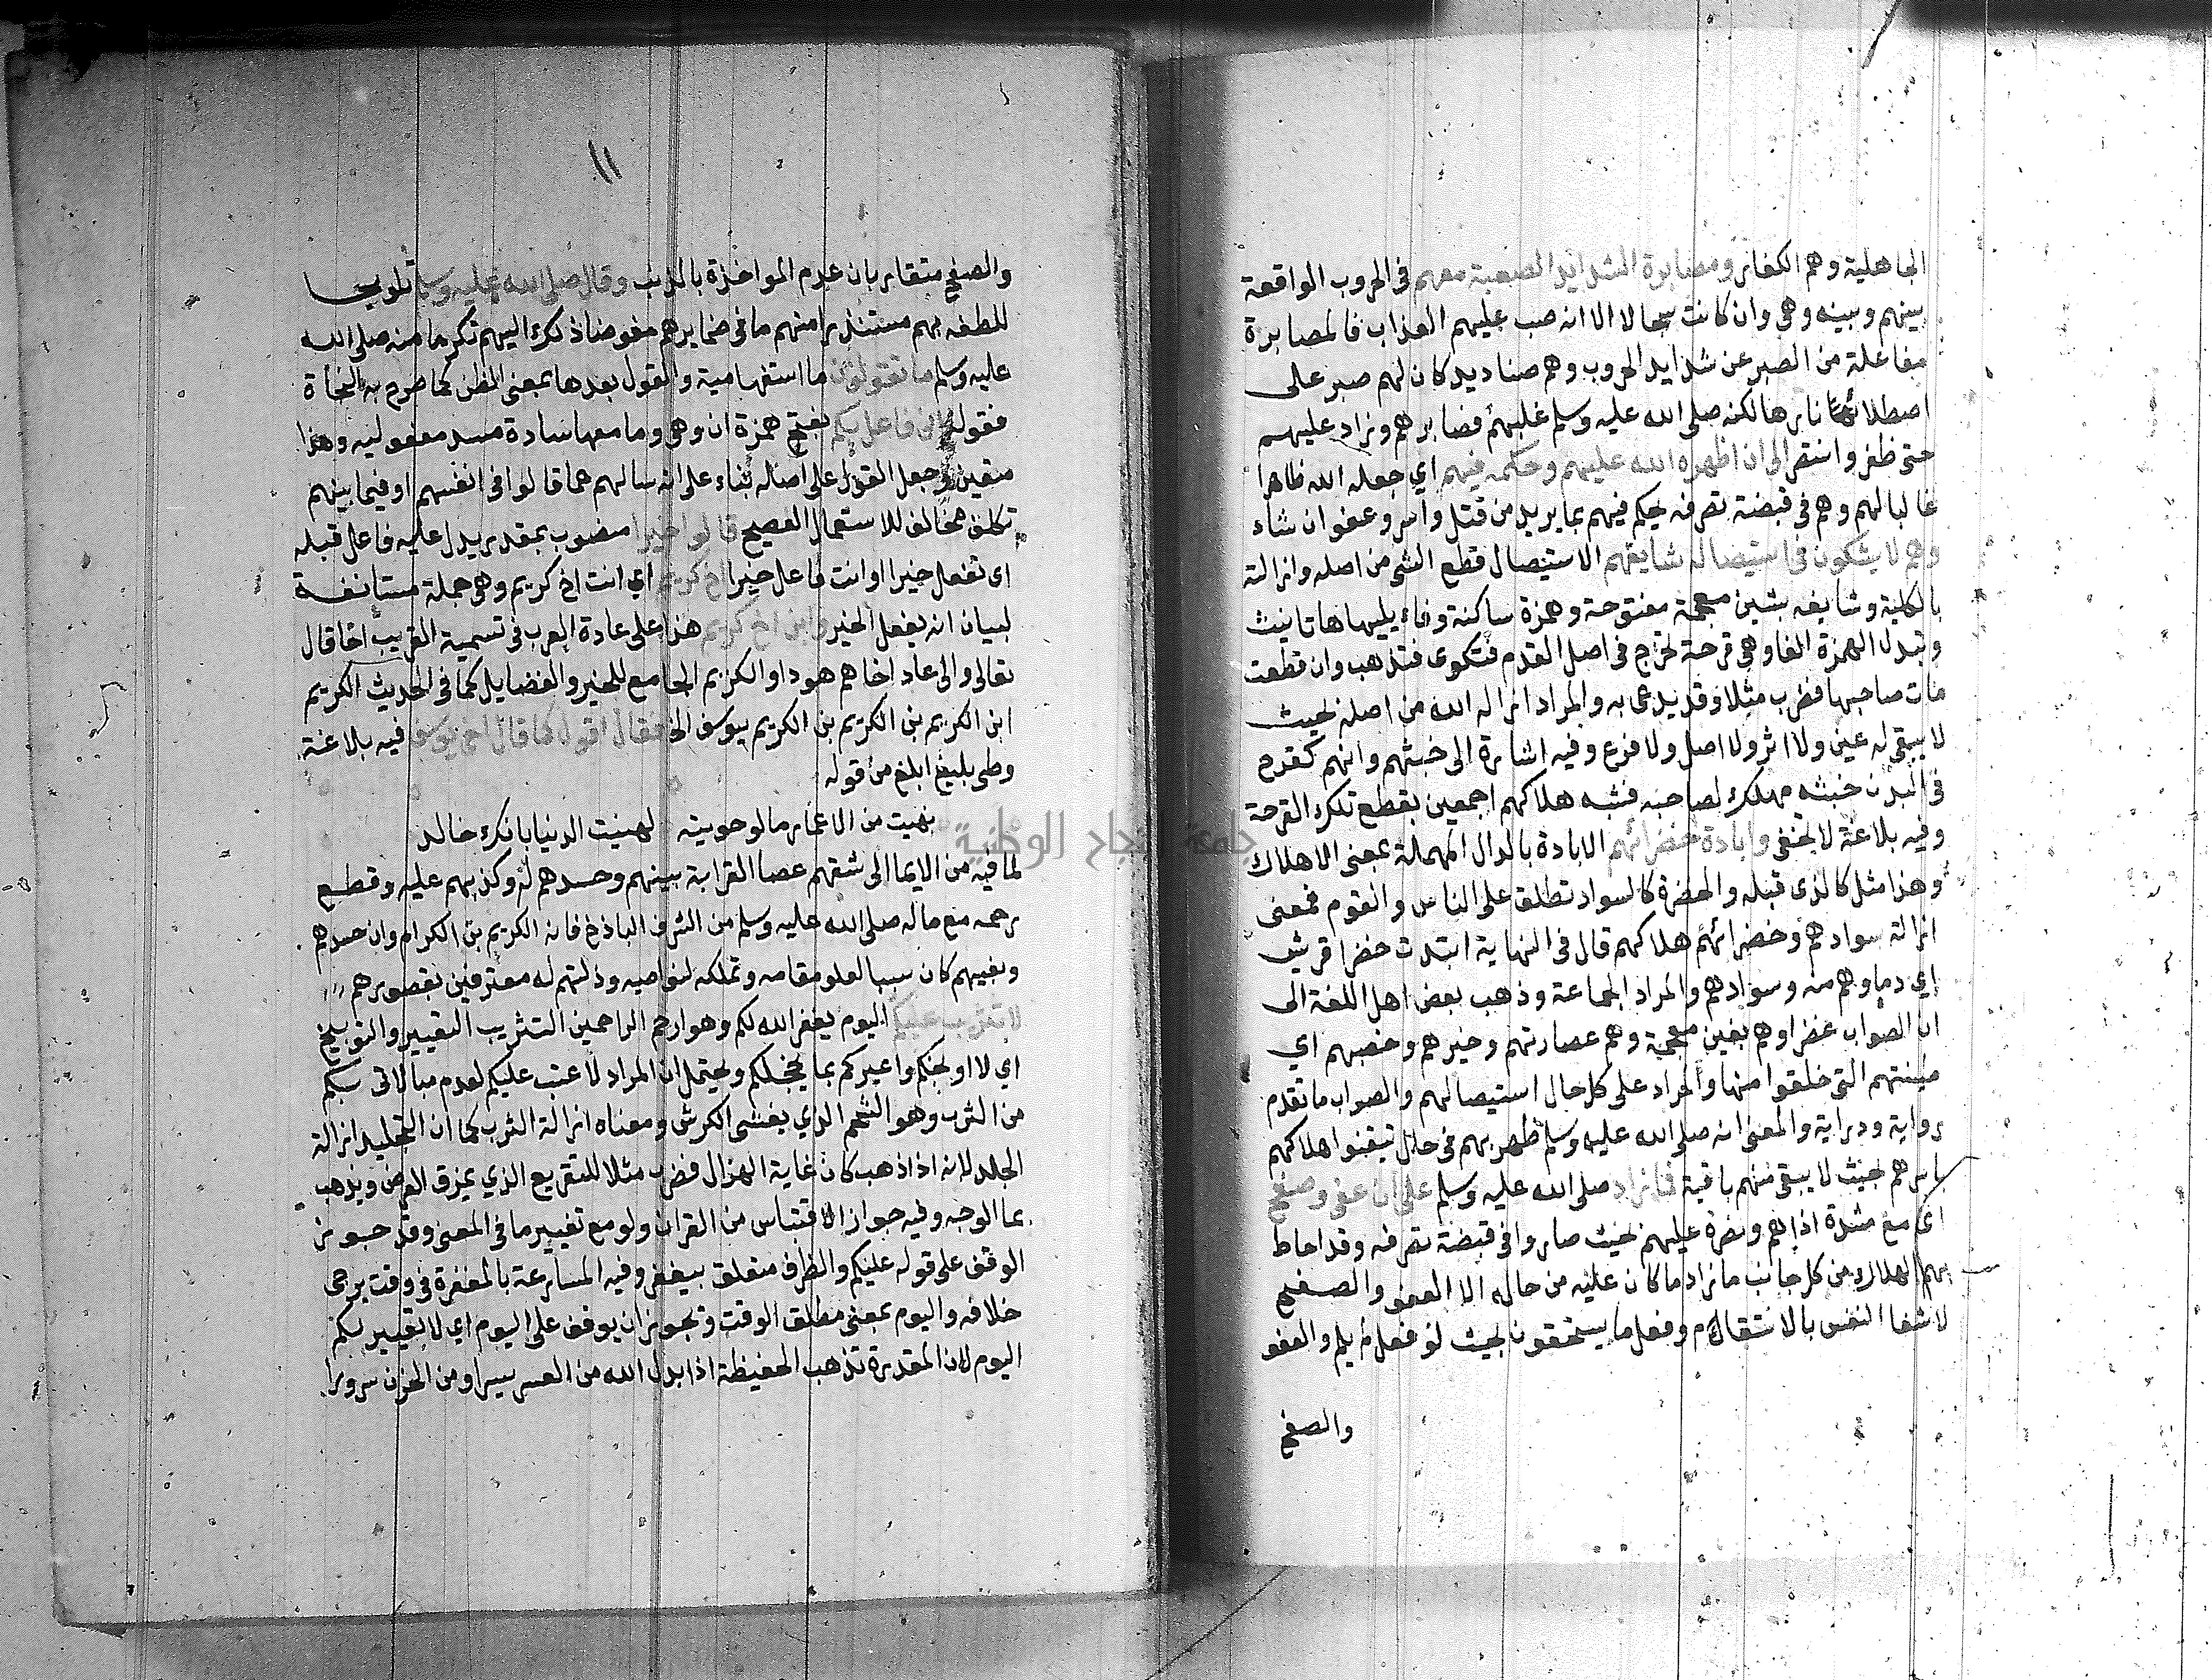 الجاهلية وهم الكفار ومصابرة الشدائد الصعبة معهم في الحروب الواقعة
بينهم وبينه وهي وان كانت سجالا الا انه صب عليهم العذاب فالمصابرة
مفاعلة من الصبر عن شدايد الحروب وهم صناديد كان لهم صبر على
اصطلائهم نارها لكنه صلى الله عليه وسلم غلبهم فصابرهم وزاد عليهم
حتى ظفر وانتقر الى ان اظهره الله عليهم وحكمه فيهم اي جعله الله ظاهرا
غالبا لهم وهم في قبضة تصرفه يحكم فيهم بما يريد من قتل واسر وعفو ان شاء
وهم لا يشكون في استيصاله شايفتهم الاستيصال قطع الشي من اصله وازالته
بالكلية وشايفه بشين معجمة مفتوحة وهمزة ساكنة وفاء يليها هاء تانيث
وتبدل الهمزة الفا وهي قرحة تخرج في اصل القدم فتكوى فتذهب وان قطعت
مات صاحبها فضرب مثلا وقد يدعى به والمراد ازاله الله من اصله بحيث
لا يبقى له عين ولا اثر ولا اصل ولا فرع وفيه اشارة الى خبثهم وانهم كقرح
في البدن خبثه مهلك لصاحبه فشبه هلاكهم اجمعين بقطع تلك القرحة
وفيه بلاغة لا تخفى وابادة خضرائهم الابادة بالدال المهملة بمعنى الاهلاك
وهذا مثل كالذى قبله والخضرة كالسواد تطلق على الناس والقوم فمعنى
ازالة سوادهم وخضرائهم هلاكهم قال في النهاية ابيدت خضرا قريش
اي دماوهم منه وسوادهم والمراد الجماعة وذهب بعض اهل اللغة الى
ان الصواب غضراوهم بغين معجمة وهم عصارتهم وخيرهم وخصبهم اي
طينتهم التي خلقوا منها والمراد على كل حال استيصالهم والصواب ما تقدم
رواية ودراية والمعنى انه صلى الله عليه وسلم ظهر بهم في حال تيقنوا هلاكهم
باسرهم بحيث لا يبقى منهم باقية فما زاد صلى الله عليه وسلم على ان عفى وصفح
اى مع شدة اذاهم ونصرة عليهم بحيث صاروا في قبضة تصرفه وقد احاط
بهم الهلاك من كل جانب ما زاد ما كان عليه من حاله الا العفو والصفح
لا شفا النفس بالانتقام وفعل ما يستحقون بحيث لو فعل لم يلم والعفو
والصفح
١١
والصفح متقاربان عدم المواخذة بالذنب وقال صلى الله عليه وسلم تلويحا
للطفه بهم مستنذرا منهم ما في ضمايرهم مفوضا ذلك اليهم تكرما منه صلى الله
عليه وسلم ما تقولون ما استفهامية والقول بعدها بمعنى الظن كما صرح به النحاة
فقوله اني فاعل بكم بفتح همزة ان وهي وما معها سادة مسد مفعوليه وهذا
متعين وجعل القول على اصله بناء على انه سالهم عما قالوا في انفسهم او فيما بينهم
تكلف مخالف للاستعمال الفصيح قالوا خيرا منصوب بمقدر يدل عليه فاعل قبله
اى تفعل خيرا او انت فاعل خيرا اخ كريم اي انت اخ كريم وهي جملة مستانفة
لبيان انه يفعل الخير وابن اخ كريم هذا على عادة العرب في تسمية القريب اخا قال
تعالى والى عاد اخاهم هودا والكريم الجامع للخير والفضايل كما في الحديث الكريم
ابن الكريم بن الكريم بن الكريم يوسف الخ فقال اقول كما قال اخي يوسف فيه بلاغة
وطى بليغ ابلغ من قوله
نهبت من الاعمار ما لو حويته لهنيت الدنيا بانك خالد
لما فيه من الايما الى شقهم عصا القرابة بينهم وحسدهم له وكذبهم عليه وقطع
رحمه مع ماله صلى الله عليه وسلم من الشرف الباذخ فانه الكريم بن الكرام وان حسدهم
وبغيهم كان سببا لعلو مقامه وتملكه لنواصيه وذلتهم له معترفين بقصورهم
لا تثريب عليكم اليوم يغفر الله لكم وهو ارحم الراحمين التثريب التعيير والتوبيخ
اي لا اوبخكم واعيركم بما يخجلكم ويحتمل ان المراد لا عتب عليكم لعدم مبالاتى بكم
من الثرب وهو الشحم الذي يغشى الكرش ومعناه ازالة الثرب كما ان التجليد ازالة
الجلد لانه اذا ذهب كان غاية الهزال فضرب مثلا للتقريع الذي يمزق العرض ويذهب
بما الوجه وفيه جواز الاقتباس من القران ولو مع تغيير ما في المعنى وقد جوز
الوقف على قوله عليكم والظرف متعلق بيغفر وفيه المسارعة بالمغفرة في وقت يرجى
خلافه واليوم بمعنى مطلق الوقت وتجوز ان يوقف على اليوم اي لا تعيير لكم
اليوم لان المقدرة تذهب الحفيظة اذا بدل الله من العسر يسرا ومن الحزن سرورا
جامعة النجاح الوطنية